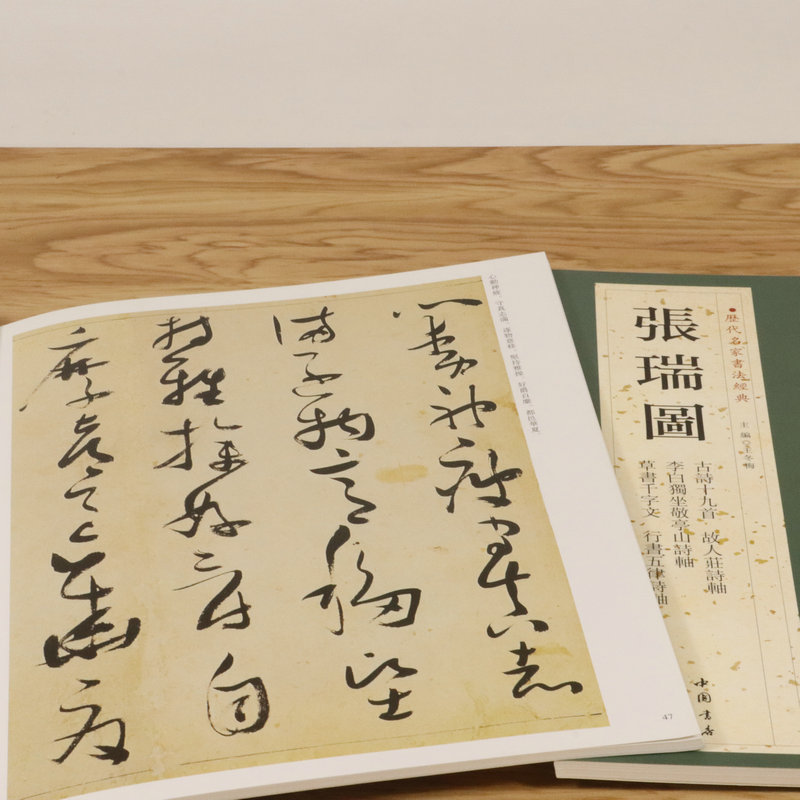 心動神疲 守真志滿 逐物意移 堅持雅操 好爵自縻 都邑華夏
心動神疲守真志
滿逐物意移堅
持雅操好爵自
縻都邑華夏
47
歷代名家書法經典
主編 王冬梅
張瑞圖
古詩十九首 故人莊詩軸
李白獨坐敬亭山詩軸
草書千字文 行書五律詩軸
中國書店